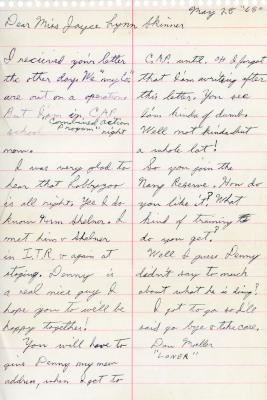 May 28 "68"
Dear Miss Joyce Lynn Skinner
I recieved your letter
the other day. We
are out on a operations
But I'm in C.A.P.
school "Combined action
Program" right
now.
I was very glad to
hear that
is all right. Yes I do
know Him
met him &
in I.T.R. & again at
staging. Denny is
a real nice guy I
hope you to will be
happy together!
You will have to
give Denny my new
address, when I get to
C.A.P. until. oh I forgot
that I am writing after
this letter. You see
I am kinda of dumb.
Well not kinda but
a whole lot!
So you join the
Navy Reserve. How do
you like it? What
kind of training
do you get?
Well I guess Denny
dedn't say to much
about what he is doing?
I got to go so I'll
said go bye & take care.
Dan
"LONER"